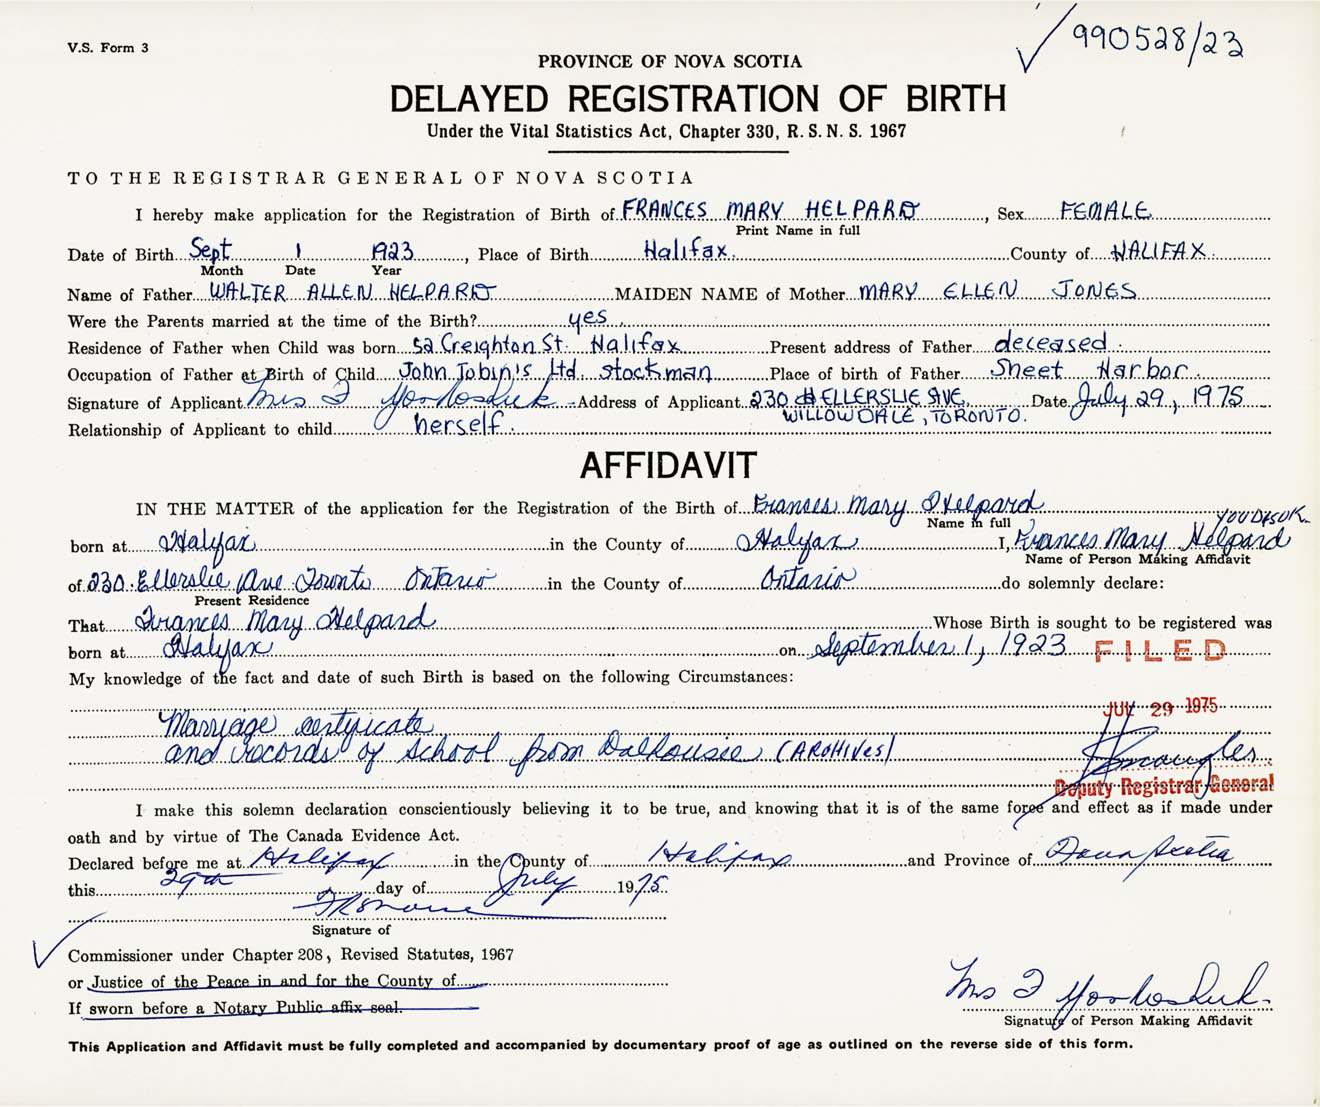 V.S. Form 3
990528/23
PROVINCE OF NOVA SCOTIA
DELAYED REGISTRATION OF BIRTH
Under the Vital Statistics Act, Chapter 330, R. S. N. S. 1967
TO THE REGISTRAR GENERAL OF NOVA SCOTIA
I hereby make application for the Registration of Birth of FRANCES MARY HELPARD, Sex FEMALE
Print Name in full
Date of Birth Sept 1 1923, Place of Birth Halifax. County of HALIFAX.
Month Date Year
Name of Father WALTER ALLEN HELPARD MAIDEN NAME of Mother MARY ELLEN JONES
Were the Parents married at the time of the Birth? yes.
Residence of Father when Child was born 52 Creighton St. Halifax Present address of Father deceased.
Occupation of Father at Birth of Child John Tobin's Ltd. stockman Place of birth of Father Sheet Harbor.
Signature of Applicant Mrs F Address of Applicant 230 ELLERSLIE AVE, Date July 29, 1975
WILLOWDALE, TORONTO.
Relationship of Applicant to child herself.
AFFIDAVIT
IN THE MATTER of the application for the Registration of the Birth of Frances Mary Helpard
Name in full
born at Halifax in the County of Halifax I, Frances Mary Helpard
Name of Person Making Affidavit
of 230 Ellerslie Ave Toronto Ontario in the County of Ontario do solemnly declare:
Present Residence
That Frances Mary Helpard Whose Birth is sought to be registered was
born at Halifax on September 1, 1923 FILED
My knowledge of the fact and date of such Birth is based on the following Circumstances:
JUL 29 1975
Marriage certificate
and records of school from Dalhousie (ARCHIVES)
Deputy Registrar General
I make this solemn declaration conscientiously believing it to be true, and knowing that it is of the same force and effect as if made under
oath and by virtue of The Canada Evidence Act.
Declared before me at Halifax in the County of Halifax and Province of Nova Scotia
this 29th day of July 1975
Signature of
Commissioner under Chapter 208, Revised Statutes, 1967
or Justice of the Peace in and for the County of
If sworn before a Notary Public affix seal.
Mrs F
Signature of Person Making Affidavit
This Application and Affidavit must be fully completed and accompanied by documentary proof of age as outlined on the reverse side of this form.